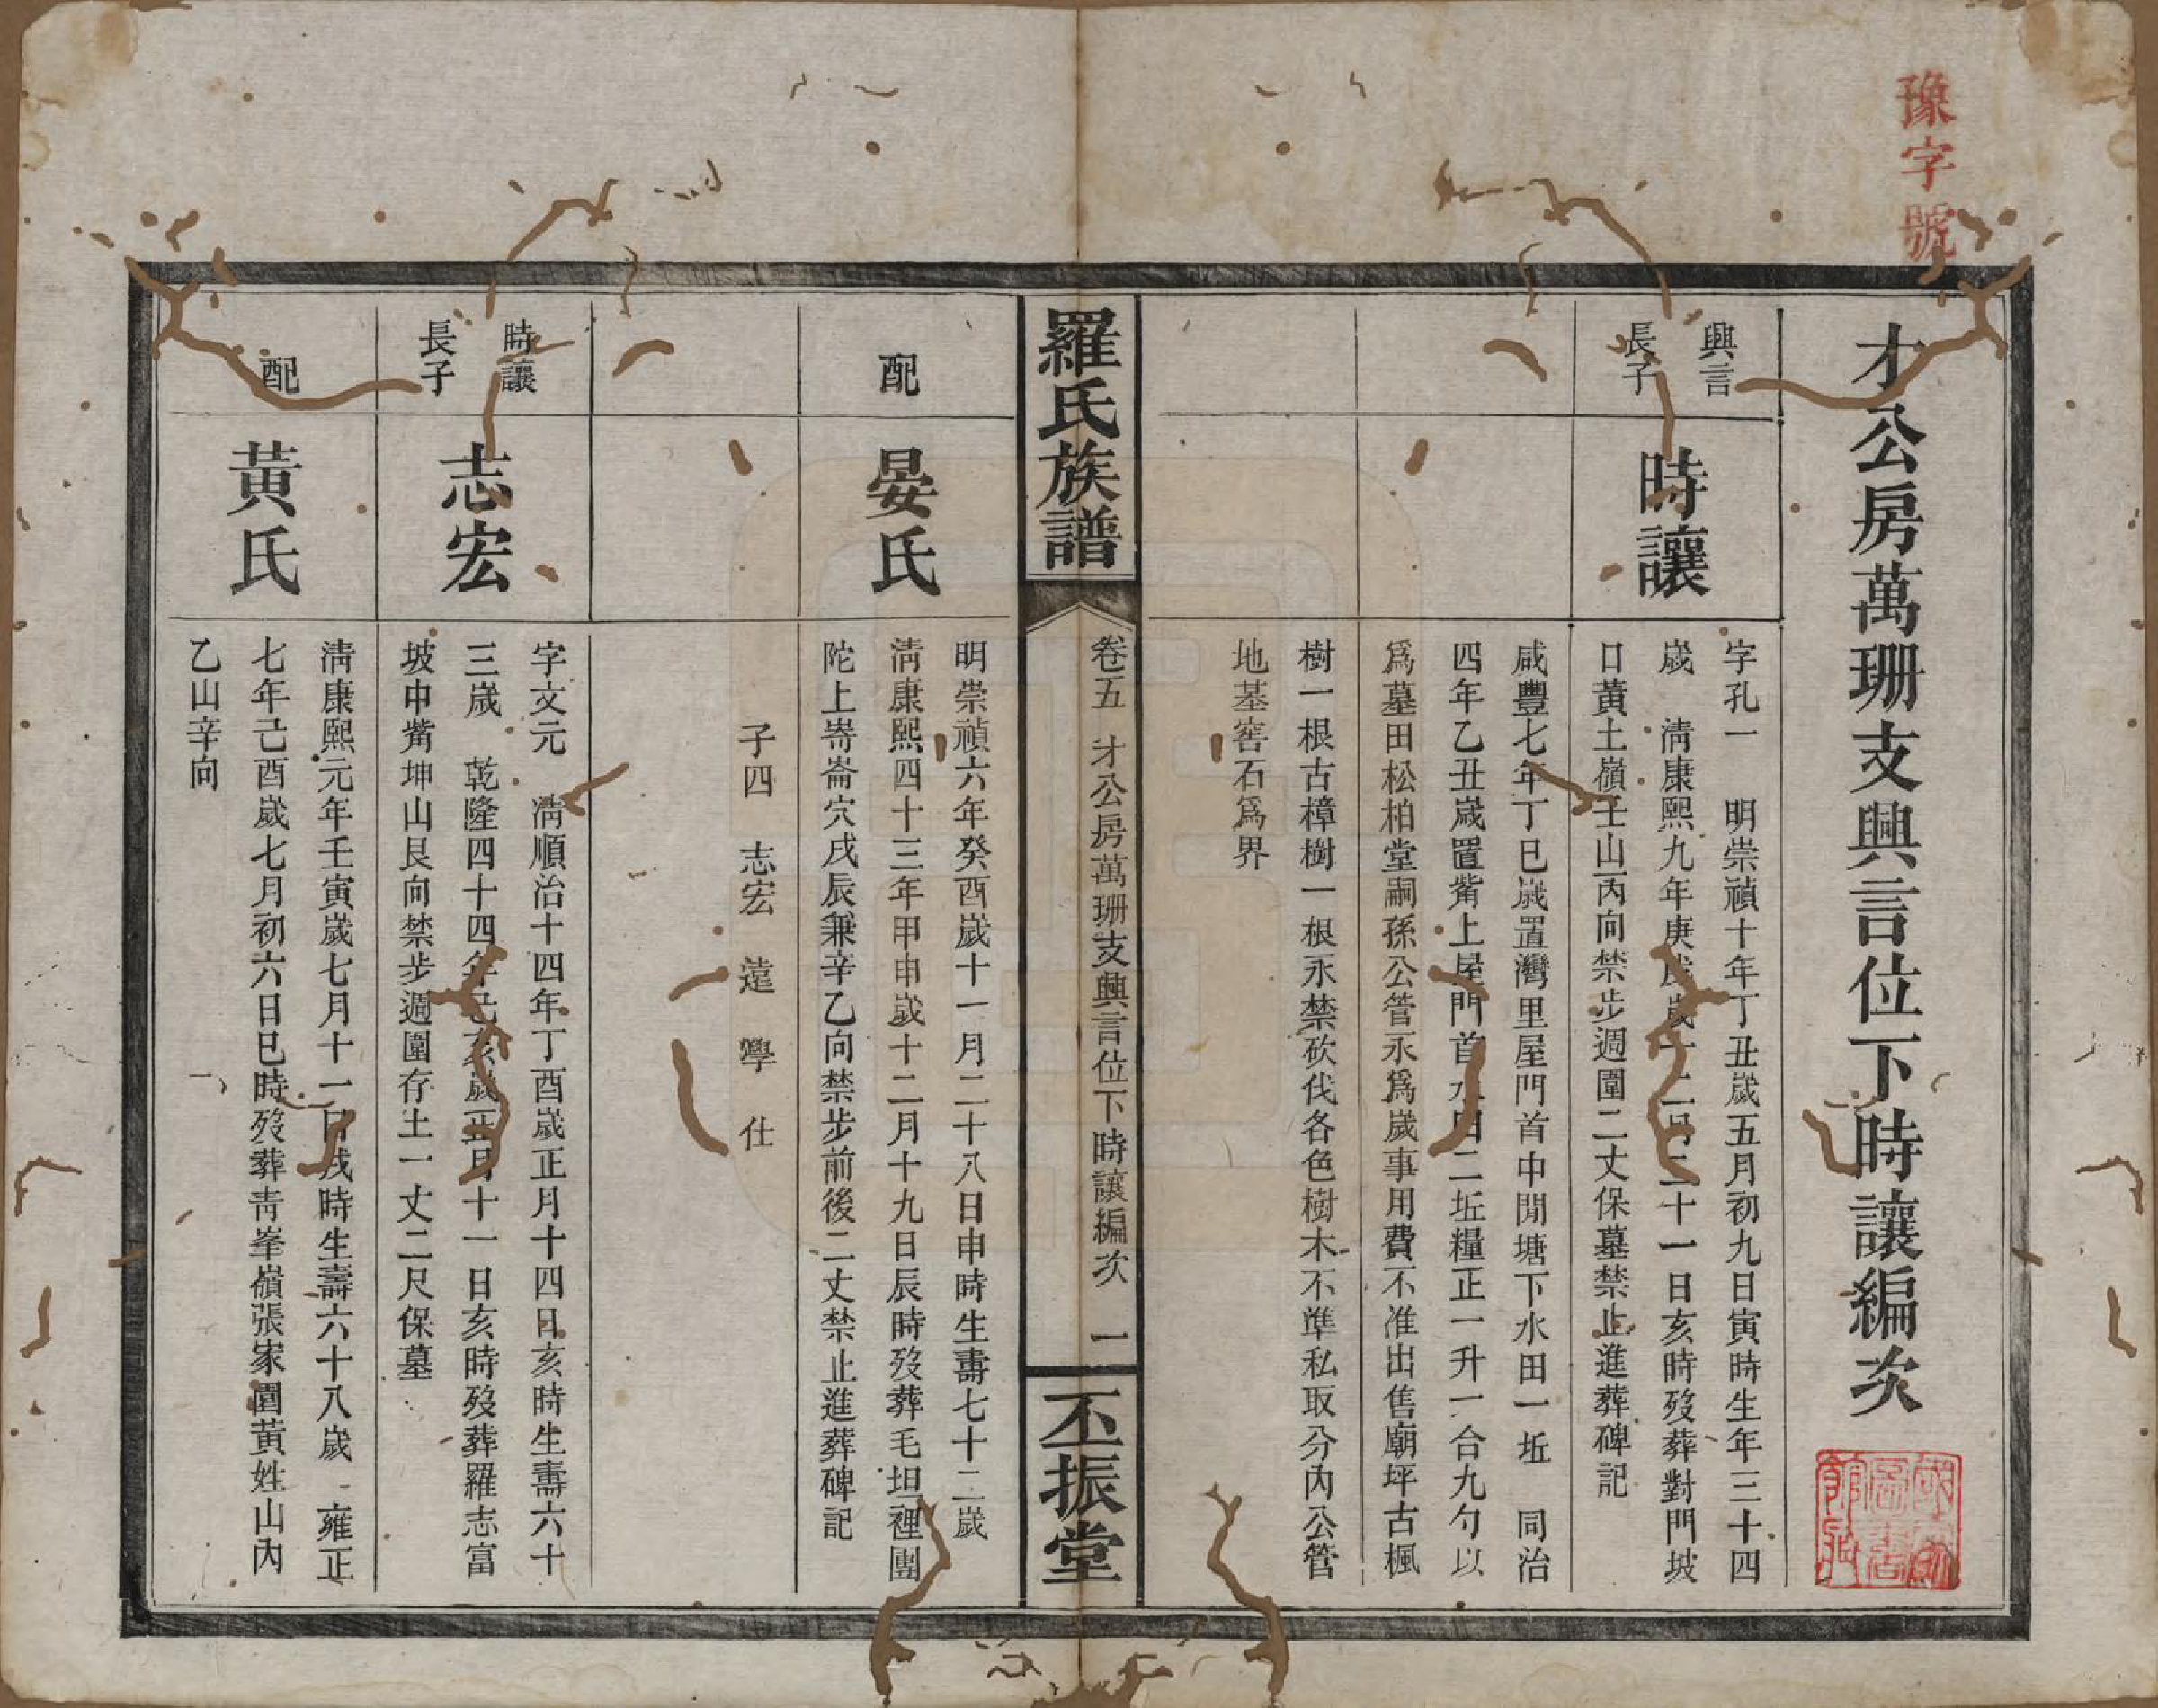 豫字號
才公房萬珊支興言位下時讓編次
興言
長子
時讓
字孔一　明崇禎十年丁丑歲五月初九日寅時生年三十四
歲　清康熙九年庚戌歲十二月二十一日亥時歿葬對門坡
口黃土嶺壬山丙向禁步週圍二丈保墓禁止進葬碑記
咸豐七年丁巳歲置灣里屋門首中閒塘下水田一坵　同治
四年乙丑歲置觜上屋門首水田二坵糧正一升一合九勺以
爲墓田松柏堂嗣孫公管永爲歲事用費不准出售廟坪古楓
樹一根古樟樹一根永禁砍伐各色樹木不準私取分內公管
地基窖石爲界
羅氏族譜
卷五　才公房萬珊支興言位下時讓編次　一
丕振堂
配
晏氏
明崇禎六年癸酉歲十一月二十八日申時生壽七十二歲
清康熙四十三年甲申歲十二月十九日辰時歿葬毛坦裡團
陀上嵜崙穴戌辰兼辛乙向禁步前後二丈禁止進葬碑記
子四　志宏　遠　學　仕
時讓
長子
志宏
字文元　清順治十四年丁酉歲正月十四日亥時生壽六十
三歲　乾隆四十四年己亥歲正月十一日亥時歿葬羅志富
坡中觜坤山艮向禁步週圍存土一丈二尺保墓
配
黃氏
清康熙元年壬寅歲七月十一日戌時生壽六十八歲　雍正
七年己酉歲七月初六日巳時歿葬青峯嶺張家園黃姓山內
乙山辛向